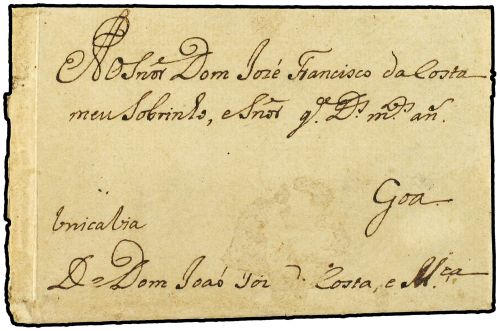 Ao Snõr Dom José Francisco da Costa
meu Sobrinho, e Snõr q.e D.s m.s añ.
Goa
Unica via
D= Dom João Costa, e